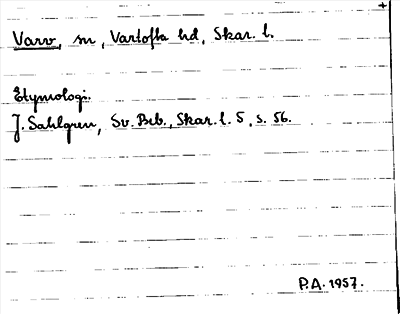 Varv, sn, Vartofta hd, Skar. l.
Etymologi.
J. Sahlgren, Sv. Beb., Skar. l. 5, s. 56.
P.A. 1957.